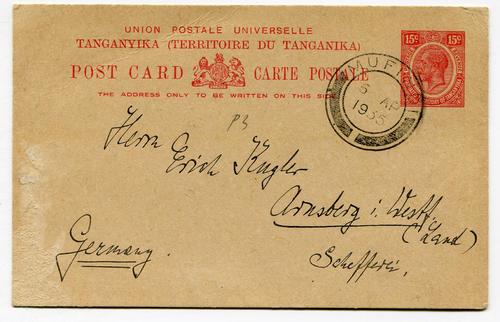 UNION POSTALE UNIVERSELLE
TANGANYIKA (TERRITOIRE DU TANGANIKA)
POST CARD CARTE POSTALE
THE ADDRESS ONLY TO BE WRITTEN ON THIS SIDE
15c 15c
MUF
5 AP
1935
P3
Herrn
Erich Kugler
Arnsberg i. Westf.
(Land)
Germany.
Schefferei,